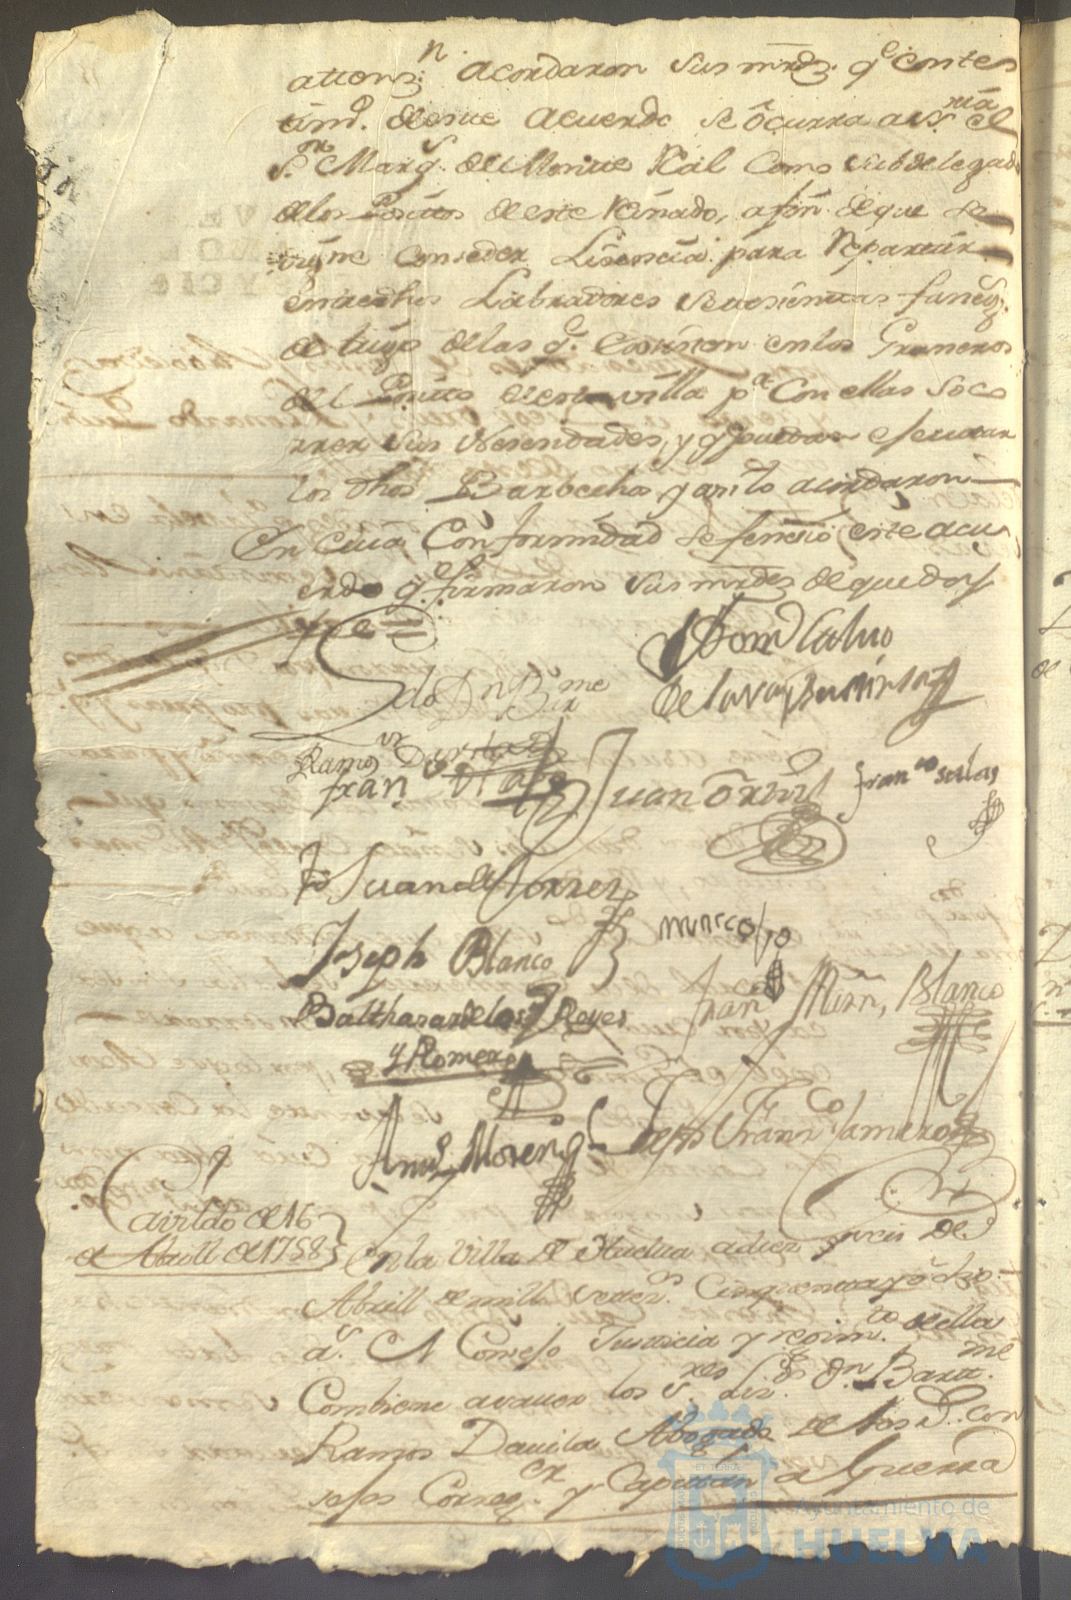 attenz.n acordaron sus mrds. qe con tes
timo. deste acuerdo se ôcurra a Sria el
Sor. Marqs. del Monte Rèal Como subdelegado
delos Positos deeste Reinado, afin deque se
digne Conseder Lisencia para Repartir
entre dhos Labradores fanegs.
de trigo delas qe. Existen enlos Graneros
del Posito deesta villa pa. Con ellas soco
rrer sus Nesesidades, y qe puedan executar
los dhos Barbechos y asi lo acordaron
En cuia Conformidad se fenesio este acu
erdo qe. firmaron sus mrdes de que doy
fee =
Domo Calvo
Ldo Dn Bme
Ramos Davila
Fran
Juan Ortiz
Franco salas
Juan de Torres
Joseph Blanco
Balthasar de los Reyes
y Romero
Fran Mrn, Blanco
Anto. Moreno
Joseph Franco Jamero
Cavildo de 16
de Abrill de 1758
En la Villa de Huelva adiez y seis de
Abrill de mill seteos. Cinquenta y ôcho
as. El Consejo Justicia y regimto. della
Combiene asaver los Sres. Lizdo. Dn Bartme
Ramos Davila Abogado de los Rs. Con
sejos Corregor. y Capitan a Guerra
Ayuntamiento de
HUELVA